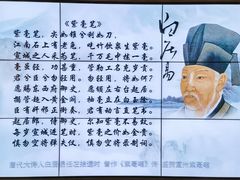 《紫毫笔》
紫毫笔，尖如锥兮利如刀。
江南石上有老兔，吃竹饮泉生紫毫。
宣城之人采为笔，千万毛中拣一毫。
毫虽轻，功甚重。管勒工名充岁贡，
君兮臣兮勿轻用。勿轻用，将何如？
愿赐东西府御史，愿颁左右台起居。
搦管趋入黄金阙，抽毫立在白玉除。
臣有奸邪正衙奏，君有动言直笔书。
起居郎，侍御史，尔知紫毫不易致。
每岁宣城进笔时，紫毫之价如金贵。
慎勿空将弹失仪，慎勿空将录制词。
白居易